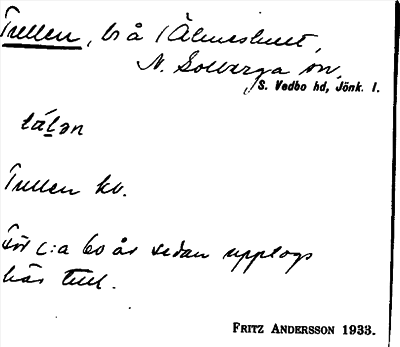 Tullen, bs å i Älmeshult,
N. Solberga sn,
S. Vedbo hd, Jönk. l.
Tullen kv.
För c:a 60 år sedan upplogs
här tull.
FRITZ ANDERSSON 1933.